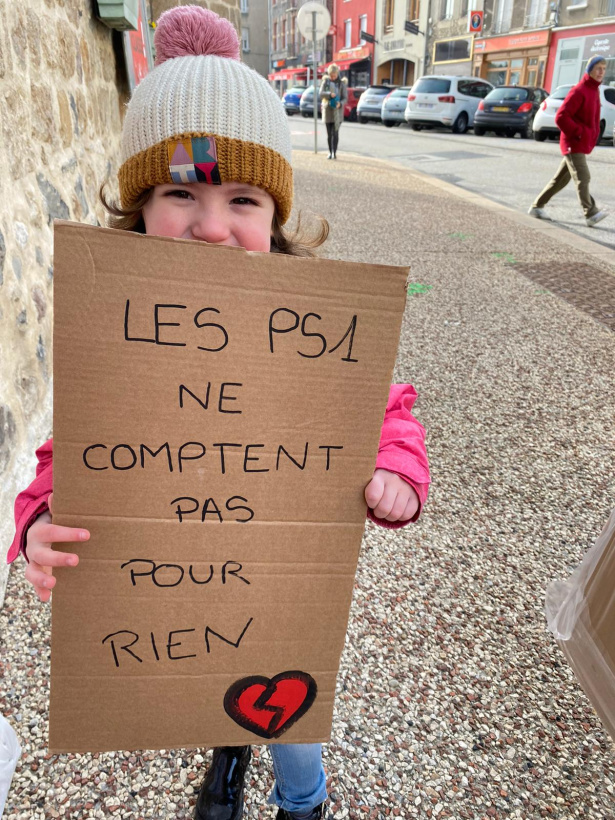 LES PS1
NE
COMPTENT
PAS
POUR
RIEN